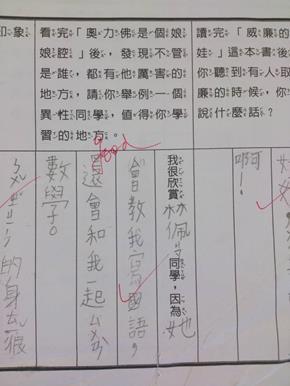 印象
看完「奧力佛是個娘
娘腔」後，發現不管
是誰，都有他厲害的
地方，請你舉例一個
異性同學，值得你學
習的地方。
讀完「威廉的
娃」這本書後
你聽到有人
廉的時候，你
說什麼話？
啊！
我很欣賞林佩同學，因為她
會教我寫國語，
還會和我一起
數學。
的身
Good